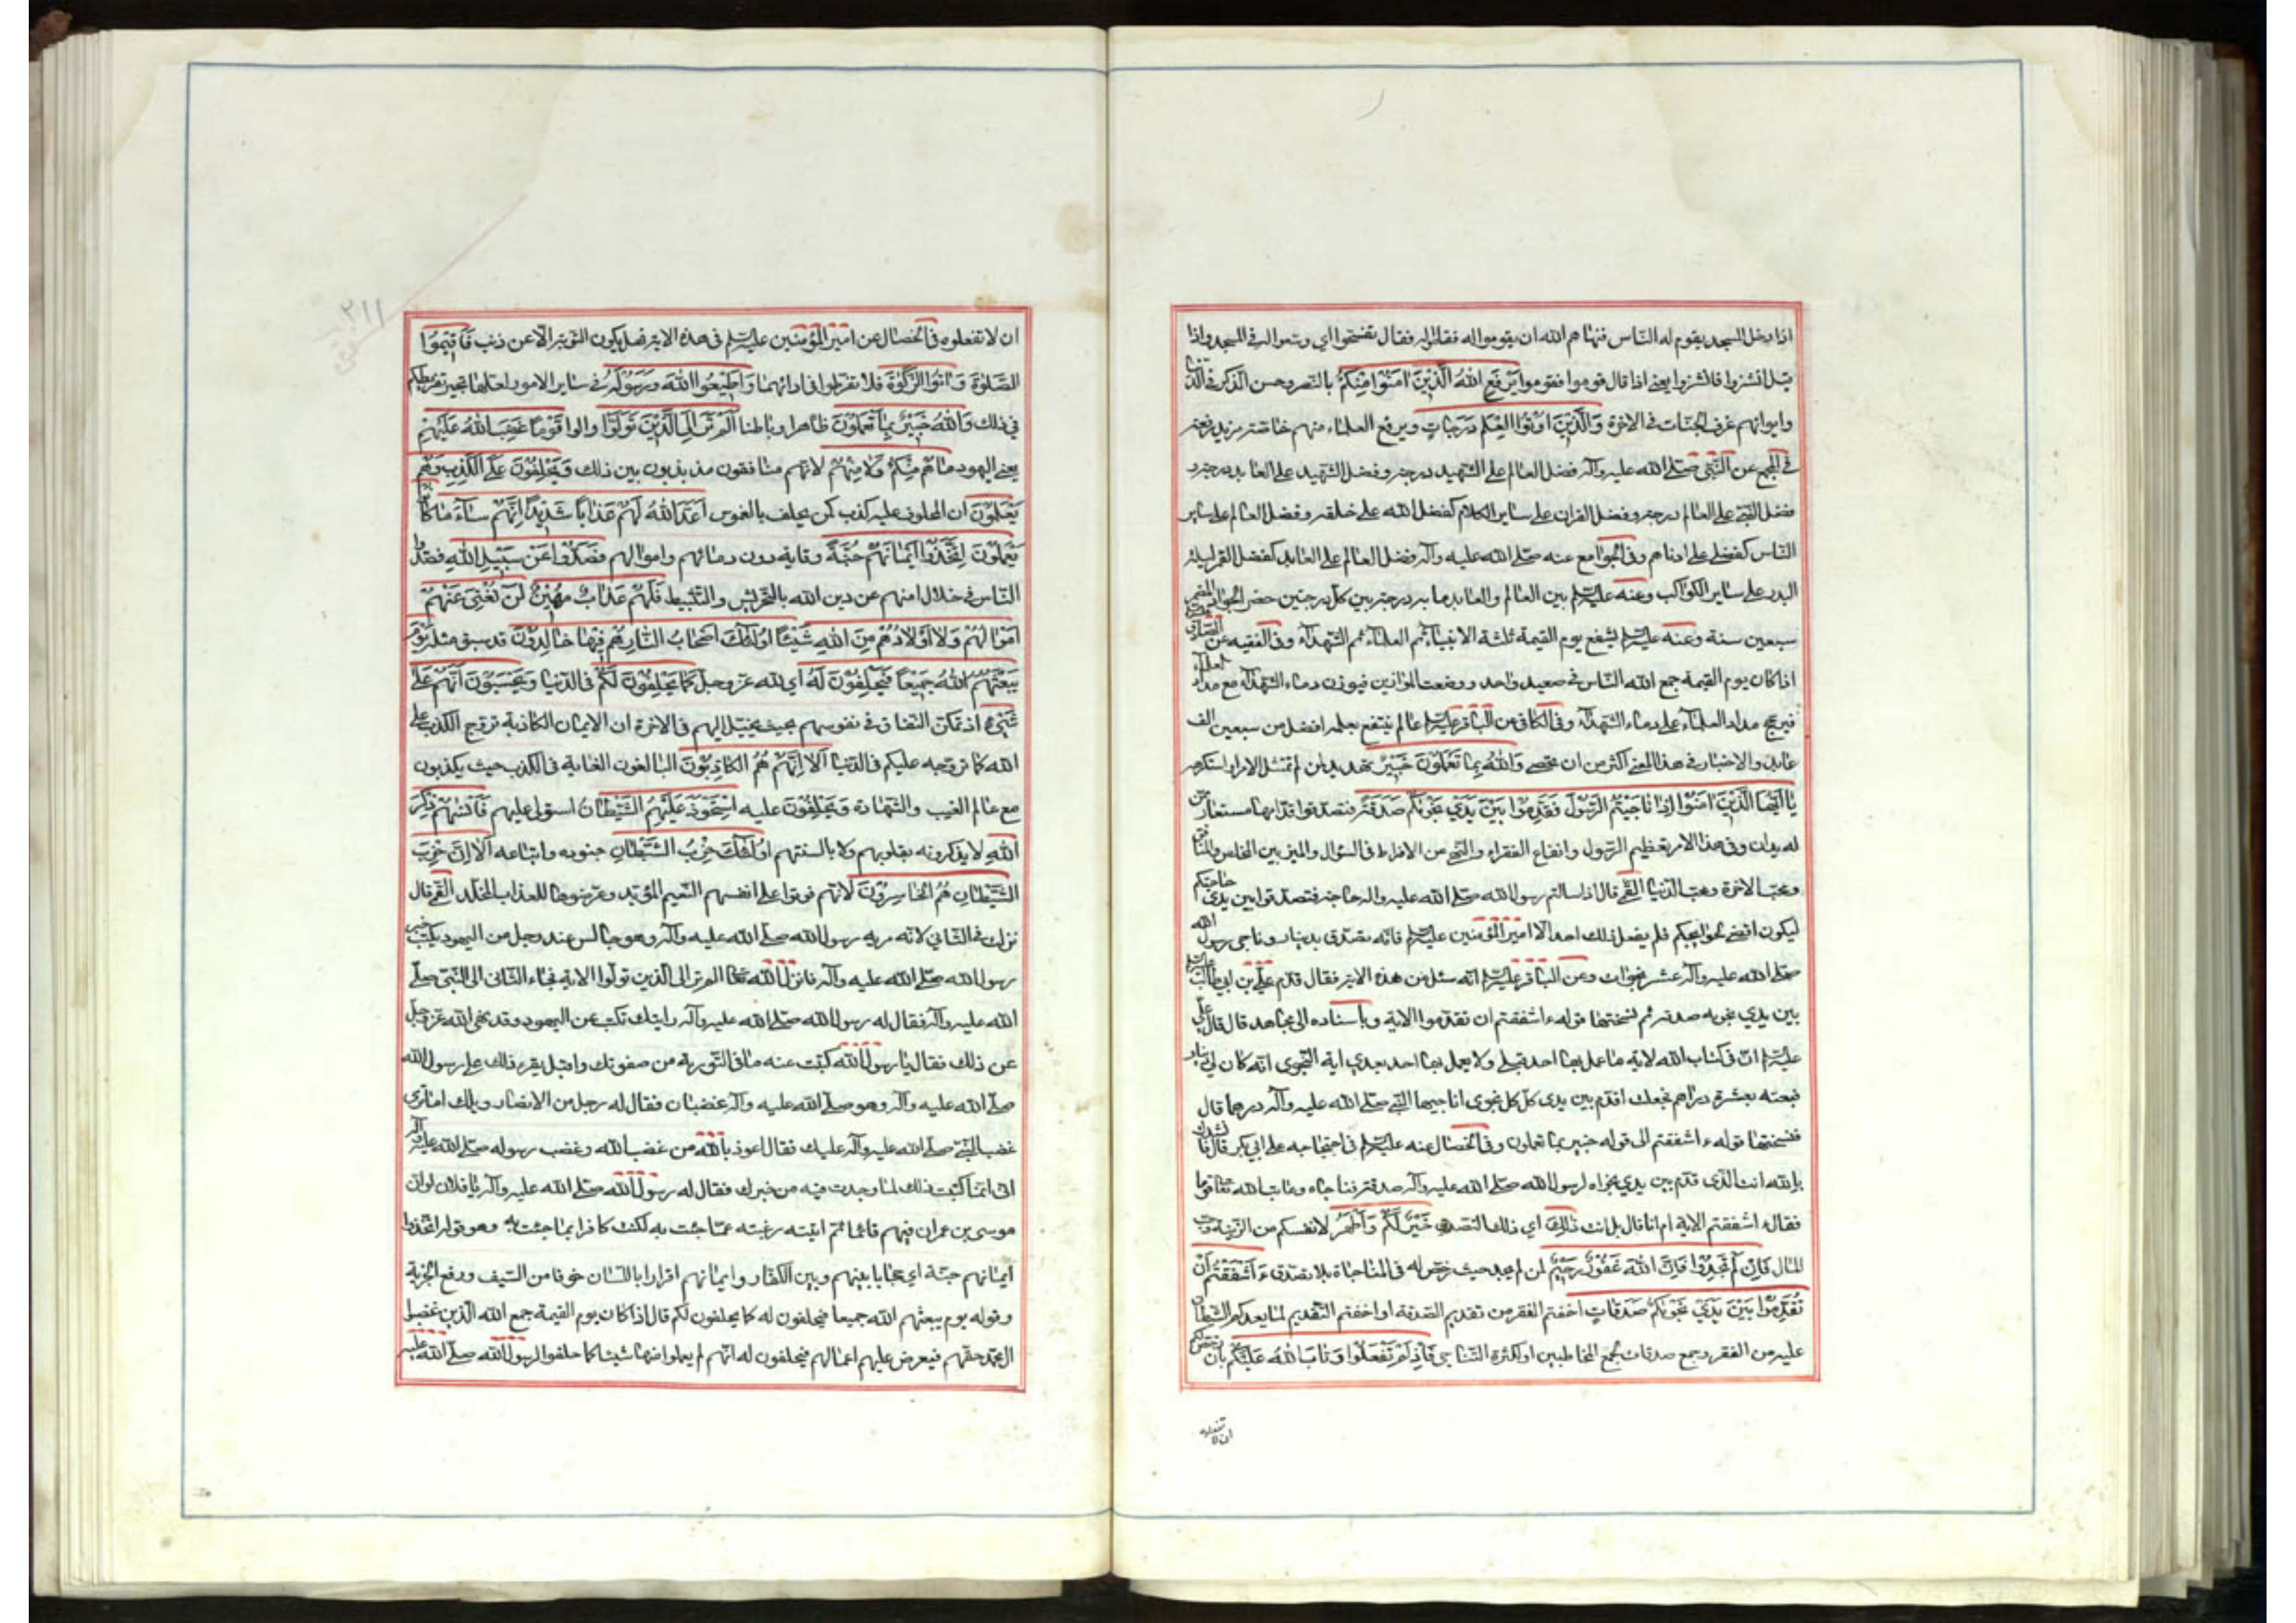 اذا دخل المسجد يقوم له الناس فنهاهم الله ان يقوموا له فقال تفسحوا اي وسعوا له في المسجد واذا
قيل انشزوا فانشزوا يعني اذا قال قوموا فقوموا يَرْفَعِ اللهُ الَّذِينَ امَنُوا مِنْكُمْ بالنصر وحسن الذكر في الدنيا
وايوائهم غرف الجنات في الاخرة وَالَّذِينَ اوُتُوا العِلْمَ دَرَجَاتٍ ويرفع العلماء منهم خاصة مزيد رفعة
في المجمع عن النبي صلى الله عليه وآله فضل العالم على الشهيد درجة وفضل الشهيد على العابد درجة و
فضل النبي على العالم درجة وفضل القران على ساير الكلام كفضل الله على خلقه وفضل العالم على ساير
الناس كفضلي على ادناهم وفي الجوامع عنه صلى الله عليه وآله فضل العالم على العابد كفضل القمر ليلة
البدر على ساير الكواكب وعنه عليه السلم بين العالم والعابد مائة درجة بين كل درجتين حضر الجواد المضمر
سبعين سنة وعنه عليه السلم يشفع يوم القيمة ثلثة الانبياء ثم العلماء ثم الشهداء وفي الفقيه عن الصادق
اذا كان يوم القيمة جمع الله الناس في صعيد واحد ووضعت الموازين فيوزن دماء الشهداء مع مداد العلماء
فيرجح مداد العلماء على دماء الشهداء وفي الكافي عن الباقر عليه السلم عالم ينتفع بعلمه افضل من سبعين الف
عابد والاخبار في هذا المعنى اكثر من ان تحصى وَاللهُ بِمَا تَعْمَلُونَ خَبِيرٌ تهديد لمن لم يتمثل الامر او استكرهه
يَا اَيُّهَا الَّذِينَ امَنُوا اِذَا نَاجَيْتُمُ الرَّسُولَ فَقَدِّمُوا بَيْنَ يَدَيْ نَجْوٰيكُمْ صَدَقَةً فتصدقوا قدامها مستعار ممن
له يدان وفي هذا الامر تعظيم الرسول وانفاع الفقراء والنهي عن الافراط في السؤال والميز بين المخلص والمنافق
ومحب الاخرة ومحب الدنيا القمي قال اذا سالتم رسول الله صلى الله عليه وآله حاجة فتصدقوا بين يدي حاجتكم
ليكون اقضى لحوائجكم فلم يفعل ذلك احد الا امير المؤمنين عليه السلم فانه تصدق بدينار وناجى رسول الله
صلى الله عليه وآله عشر نجوات وعن الباقر عليه السلم انه سئل عن هذه الاية فقال قدم علي بن ابي طالب
بين يدي نجويه صدقة ثم نسختها قوله ءاشفقتم ان تقدموا الاية وباسناده الى مجاهد قال قال علي
عليه السلم ان في كتاب الله لاية ما عمل بها احد قبلي ولا يعمل بها احد بعدي اية النجوى انه كان لي دينار
فبعته بعشرة دراهم فجعلت اقدم بين يدي كل نجوى اناجيها النبي صلى الله عليه وآله درهما قال
فنسختها قوله ءاشفقتم الى قوله خبير بما تعملون وفي الخصال عنه عليه السلم في احتجاجه على ابي بكر قال فانشدك
بالله انت الذي قدم بين يدي نجواه لرسول الله صلى الله عليه وآله صدقة فناجاه وعاتب الله تعالى قوما
فقال ءاشفقتم الاية ام انا قال بل انت ذٰلِكَ اي ذلك التصدق خَيْرٌ لَكُمْ وَاَطْهَرُ لانفسكم من الزينة وحب
المال فَاِنْ لَمْ تَجِدُوا فَاِنَّ اللهَ غَفُورٌ رَحِيمٌ لمن لم يجد حيث رخص له في المناجاة بلا تصدق ءَاَشْفَقْتُمْ اَنْ
تُقَدِّمُوا بَيْنَ يَدَيْ نَجْوٰيكُمْ صَدَقَاتٍ اخفتم الفقر من تقديم الصدقة او اخفتم التقديم لما يعدكم الشيطان
عليه من الفقر وجمع صدقات لجمع المخاطبين او لكثرة التناجي فَاِذْ لَمْ تَفْعَلُوا وَتَابَ اللهُ عَلَيْكُمْ بان رخص لكم
ان لا تفعلوه
٢١١
ان لا تفعلوه في الخصال عن امير المؤمنين عليه السلم في هذه الاية فهل يكون التوبة الا عن ذنب فَاَقِيمُوا
الصَّلوٰةَ وَاتُوا الزَّكوٰةَ فلا تفرطوا في ادائهما وَاَطِيعُوا اللهَ وَرَسُولَهُ في ساير الامور لعلها تجبر تفريطكم
في ذلك وَاللهُ خَبِيرٌ بِمَا تَعْمَلُونَ ظاهرا وباطنا اَلَمْ تَرَ اِلَى الَّذِينَ تَوَلَّوْا والوا قَوْمًا غَضِبَ اللهُ عَلَيْهِمْ
يعني اليهود مَا هُمْ مِنْكُمْ وَلَا مِنْهُمْ لانهم منافقون مذبذبون بين ذلك وَيَحْلِفُونَ عَلَى الْكَذِبِ وَهُمْ
يَعْلَمُونَ ان المحلوف عليه كذب كمن يحلف بالغموس اَعَدَّ اللهُ لَهُمْ عَذَابًا شَدِيدًا اِنَّهُمْ سَاءَ مَا كَانُوا
يَعْمَلُونَ اِتَّخَذُوا اَيْمَانَهُمْ جُنَّةً وقاية دون دمائهم واموالهم فَصَدُّوا عَنْ سَبِيلِ اللهِ فصدوا
الناس في خلال امنهم عن دين الله بالتحريش والتثبيط فَلَهُمْ عَذَابٌ مُهِينٌ لَنْ تُغْنِيَ عَنْهُمْ
اَمْوَالُهُمْ وَلَا اَوْلَادُهُمْ مِنَ اللهِ شَيْئًا اُولٰئِكَ اَصْحَابُ النَّارِ هُمْ فِيهَا خَالِدُونَ قد سبق مثله يَوْمَ
يَبْعَثُهُمُ اللهُ جَمِيعًا فَيَحْلِفُونَ لَهُ اي لله عز وجل كَمَا يَحْلِفُونَ لَكُمْ في الدنيا وَيَحْسَبُونَ اَنَّهُمْ عَلٰى
شَيْءٍ اذ تمكن النفاق في نفوسهم بحيث يخيل اليهم في الاخرة ان الايمان الكاذبة تروج الكذب على
الله كما تروجه عليكم في الدنيا اَلَا اِنَّهُمْ هُمُ الْكَاذِبُونَ البالغون الغاية في الكذب حيث يكذبون
مع عالم الغيب والشهادة ويَحْلِفُونَ عليه اِسْتَحْوَذَ عَلَيْهِمُ الشَّيْطَانُ استولى عليهم فَاَنْسٰهُمْ ذِكْرَ
اللهِ لا يذكرونه بقلوبهم ولا بالسنتهم اُولٰئِكَ حِزْبُ الشَّيْطَانِ جنوده واتباعه اَلَا اِنَّ حِزْبَ
الشَّيْطَانِ هُمُ الْخَاسِرُونَ لانهم فوتوا على انفسهم النعيم المؤبد وعرضوها للعذاب المخلد القمي قال
نزلت في الثاني لانه مر به رسول الله صلى الله عليه وآله وهو جالس عند رجل من اليهود يكتب خبر
رسول الله صلى الله عليه وآله فانزل الله تعالى الم تر الى الذين تولوا الاية فجاء الثاني الى النبي صلى
الله عليه وآله فقال له رسول الله صلى الله عليه وآله رايتك تكتب عن اليهود وقد نهى الله عز وجل
عن ذلك فقال يا رسول الله كتبت عنه ما في التورية من صفوتك واقبل يقرء ذلك على رسول الله
صلى الله عليه وآله وهو صلى الله عليه وآله غضبان فقال له رجل من الانصار ويلك اما ترى
غضب النبي صلى الله عليه وآله عليك فقال اعوذ بالله من غضب الله وغضب رسوله صلى الله عليه وآله
اني انما كتبت ذلك لما وجدت فيه من خبرك فقال له رسول الله صلى الله عليه وآله يا فلان لو ان
موسى بن عمران فيهم قائما ثم اتيته رغبة عما جئت به لكنت كافرا بما جئت به وهو قوله اتخذوا
ايمانهم جنة اي حجابا بينهم وبين الكفار وايمانهم اقرارا باللسان خوفا من السيف ودفع الجزية
وقوله يوم يبعثهم الله جميعا فيحلفون له كما يحلفون لكم قال اذا كان يوم القيمة جمع الله الذين غصبوا
ال محمد حقهم فيعرض عليهم اعمالهم فيحلفون له انهم لم يعملوا منها شيئا كما حلفوا لرسول الله صلى الله عليه